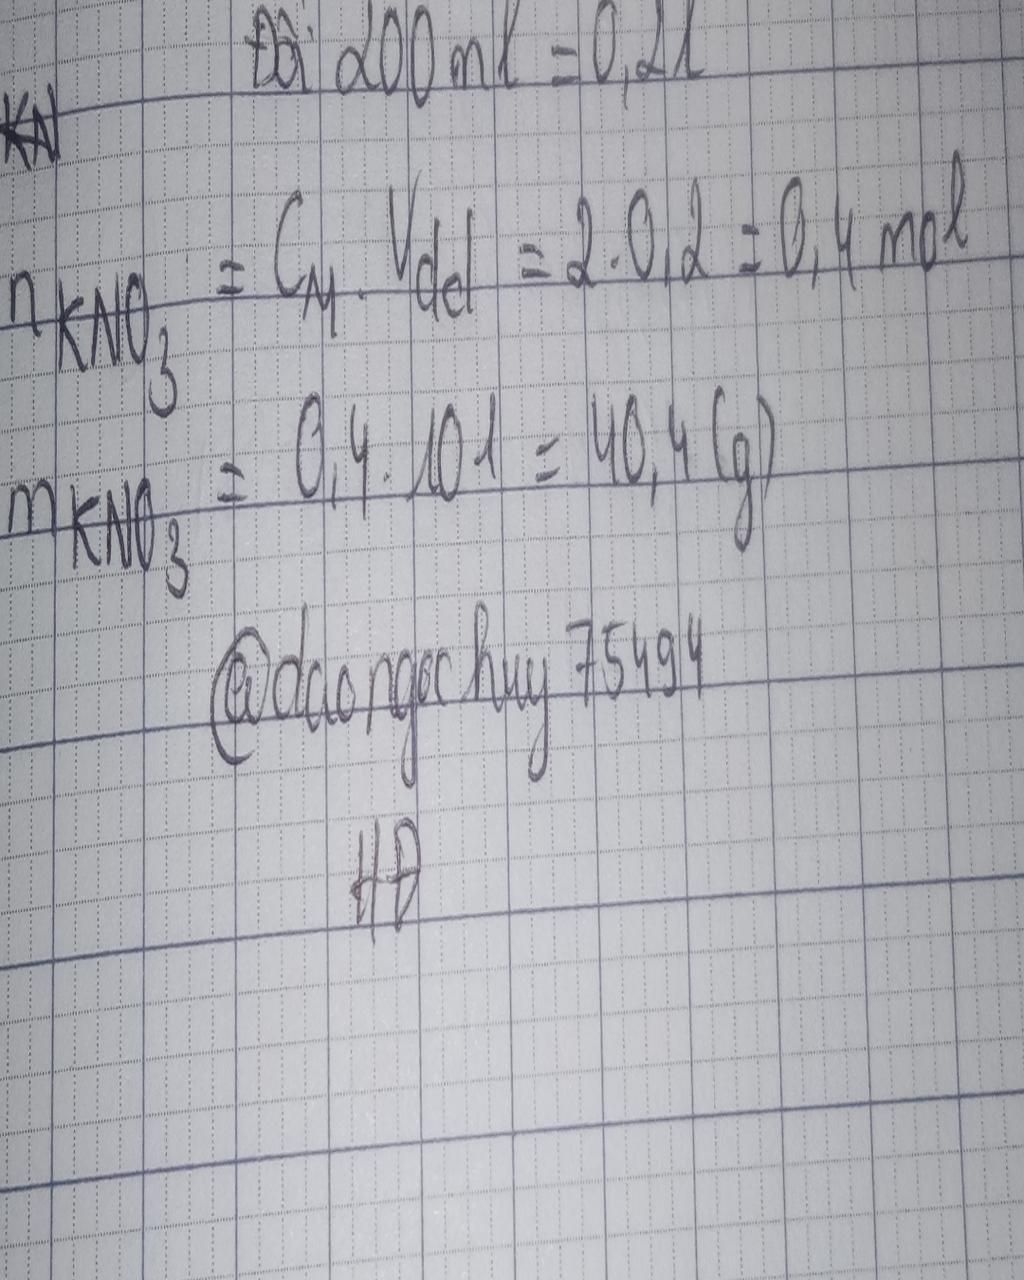 Đổi 200ml = 0,2l
KN
n KNO3 = CM. Vdd = 2.0,2 = 0,4 mol
m KNO3 = 0,4. 101 = 40,4 (g)
@daongochuy 75494
HĐ